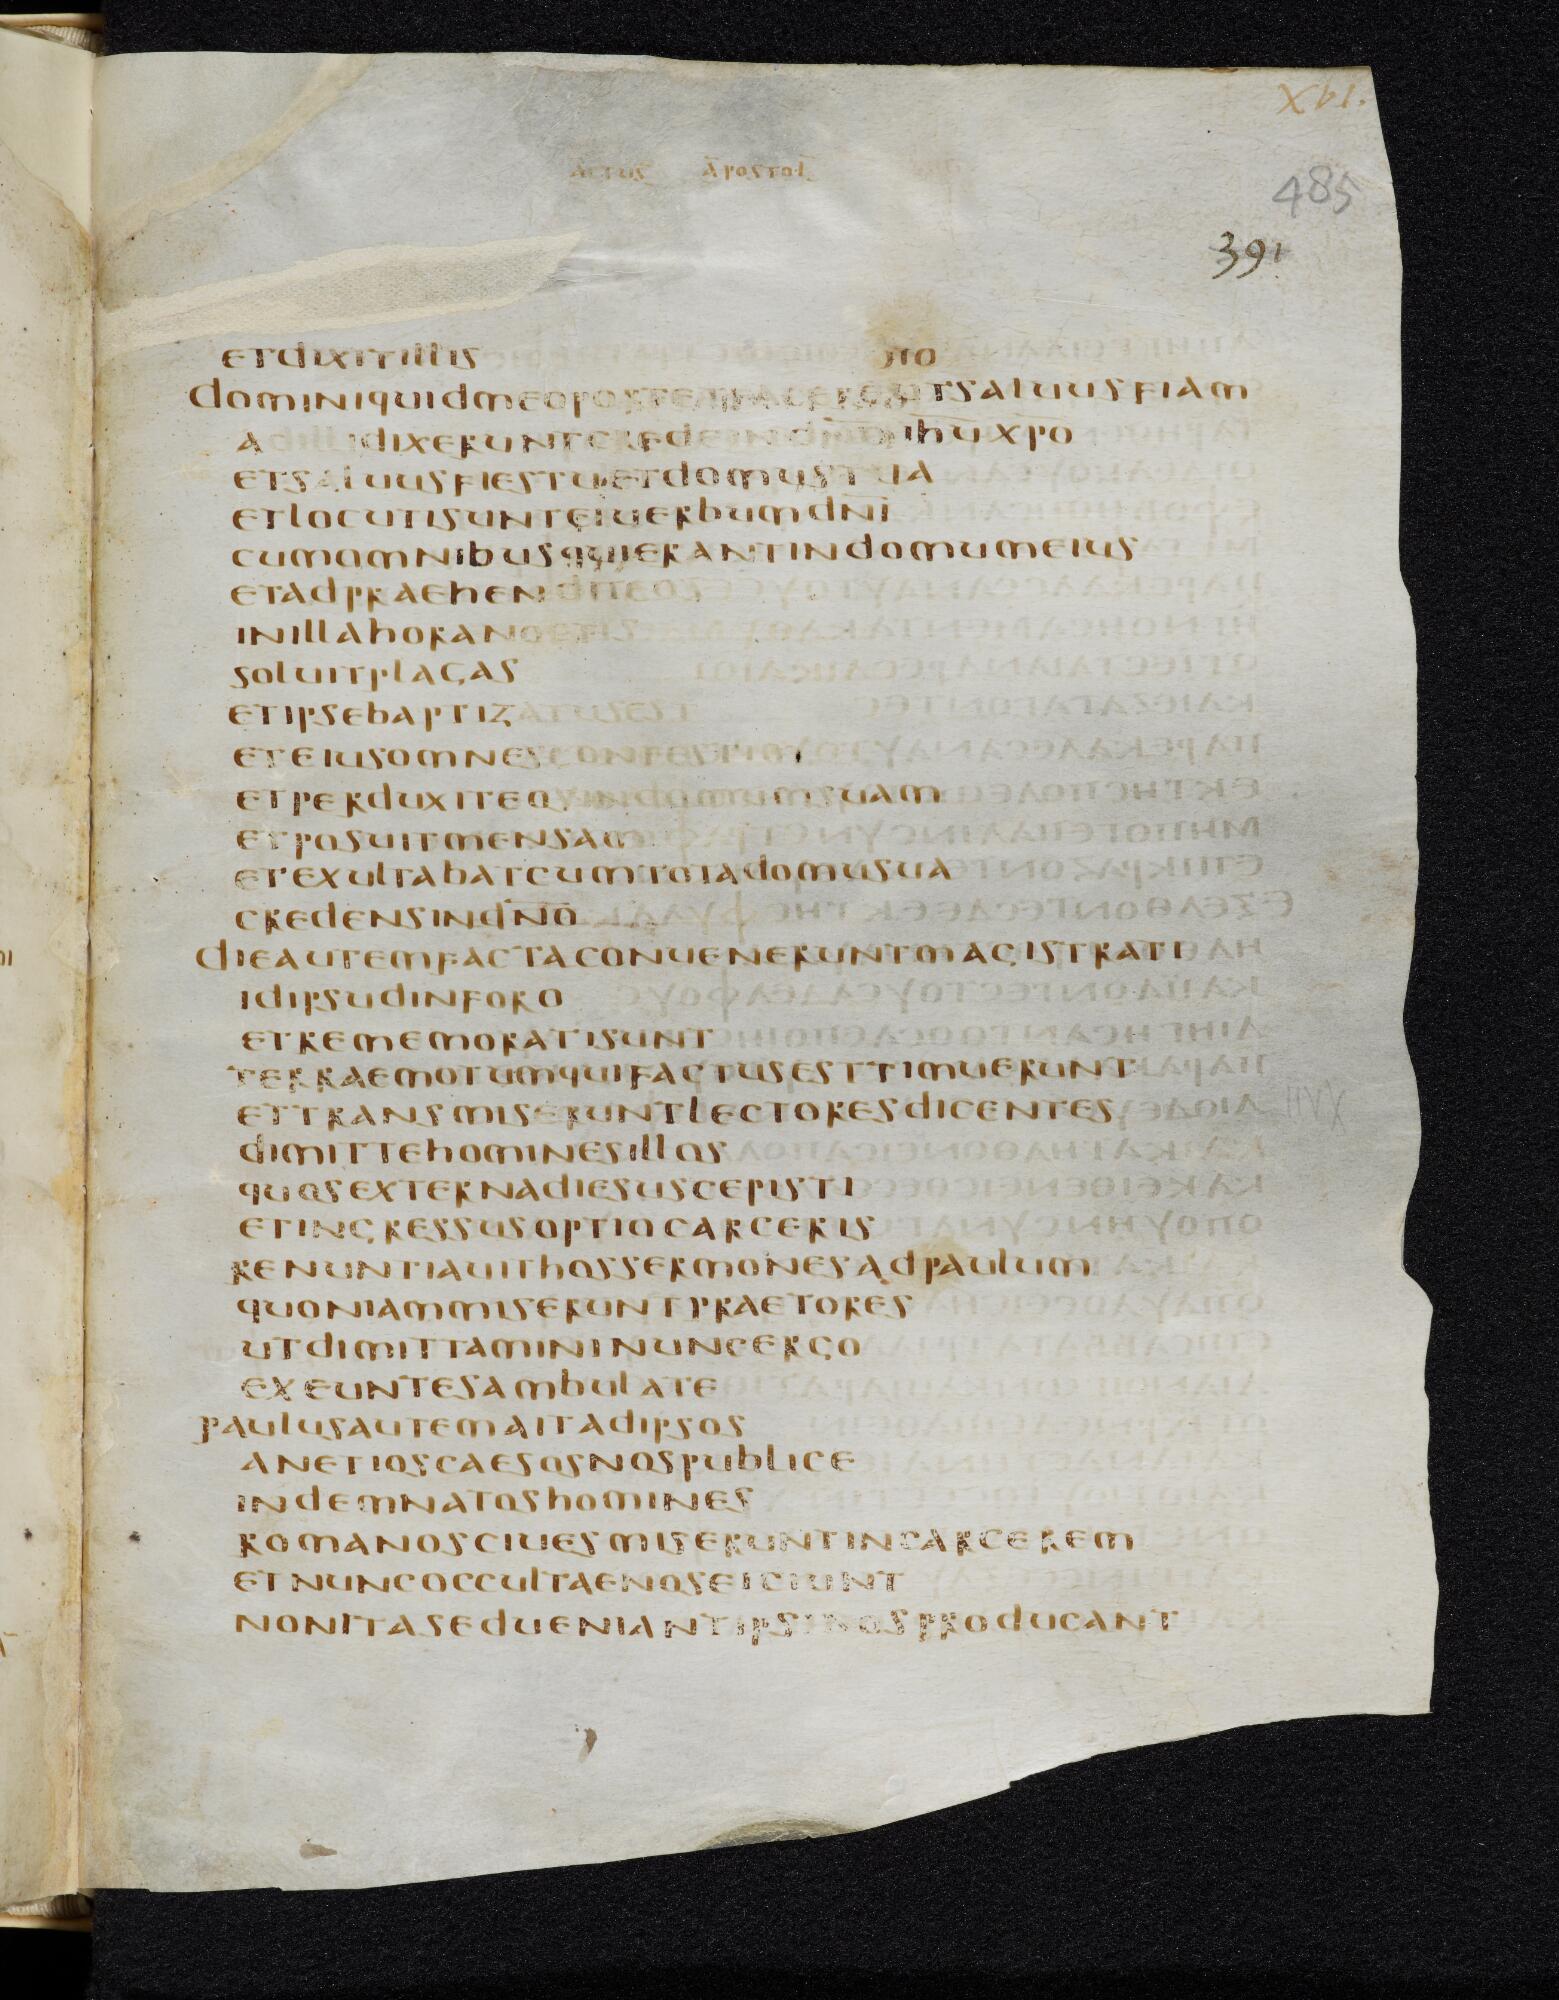 xvi.
actus apostol
485
391
etdixitillis
dominiquidmeoportetfacereutsaluusfiam
adillidixeruntcredeindn̄mih̄ux̄po
etsaluusfiestuetdomustua
etlocutisunteiuerbumdn̄i
cumomnibusquierantindomumeius
etadpraehendit
inillahoranoctis
soluitplagas
etipsebaptizatusest
eteiusomnesconfestim
etperduxiteosindomumsuam
etposuitmensam
etexultabatcumtotadomusua
credensindn̄o
dieautemfactaconueneruntmagistrati
idipsudinforo
etrememoratisunt
terraemotumquifactusesttimuerunt
ettransmiseruntlectoresdicentes
dimittehominesillos
quosexternadiesuscepisti
etingressusoptiocarceris
renuntiauithossermonesadpaulum
quoniammiseruntpraetores
utdimittamininuncergo
exeuntesambulate
paulusautemaitadipsos
anetioscaesosnospublice
indemnatoshomines
romanosciuesmiseruntincarcerem
etnuncoccultaenoseiciunt
nonitasedueniantipsinosproducant